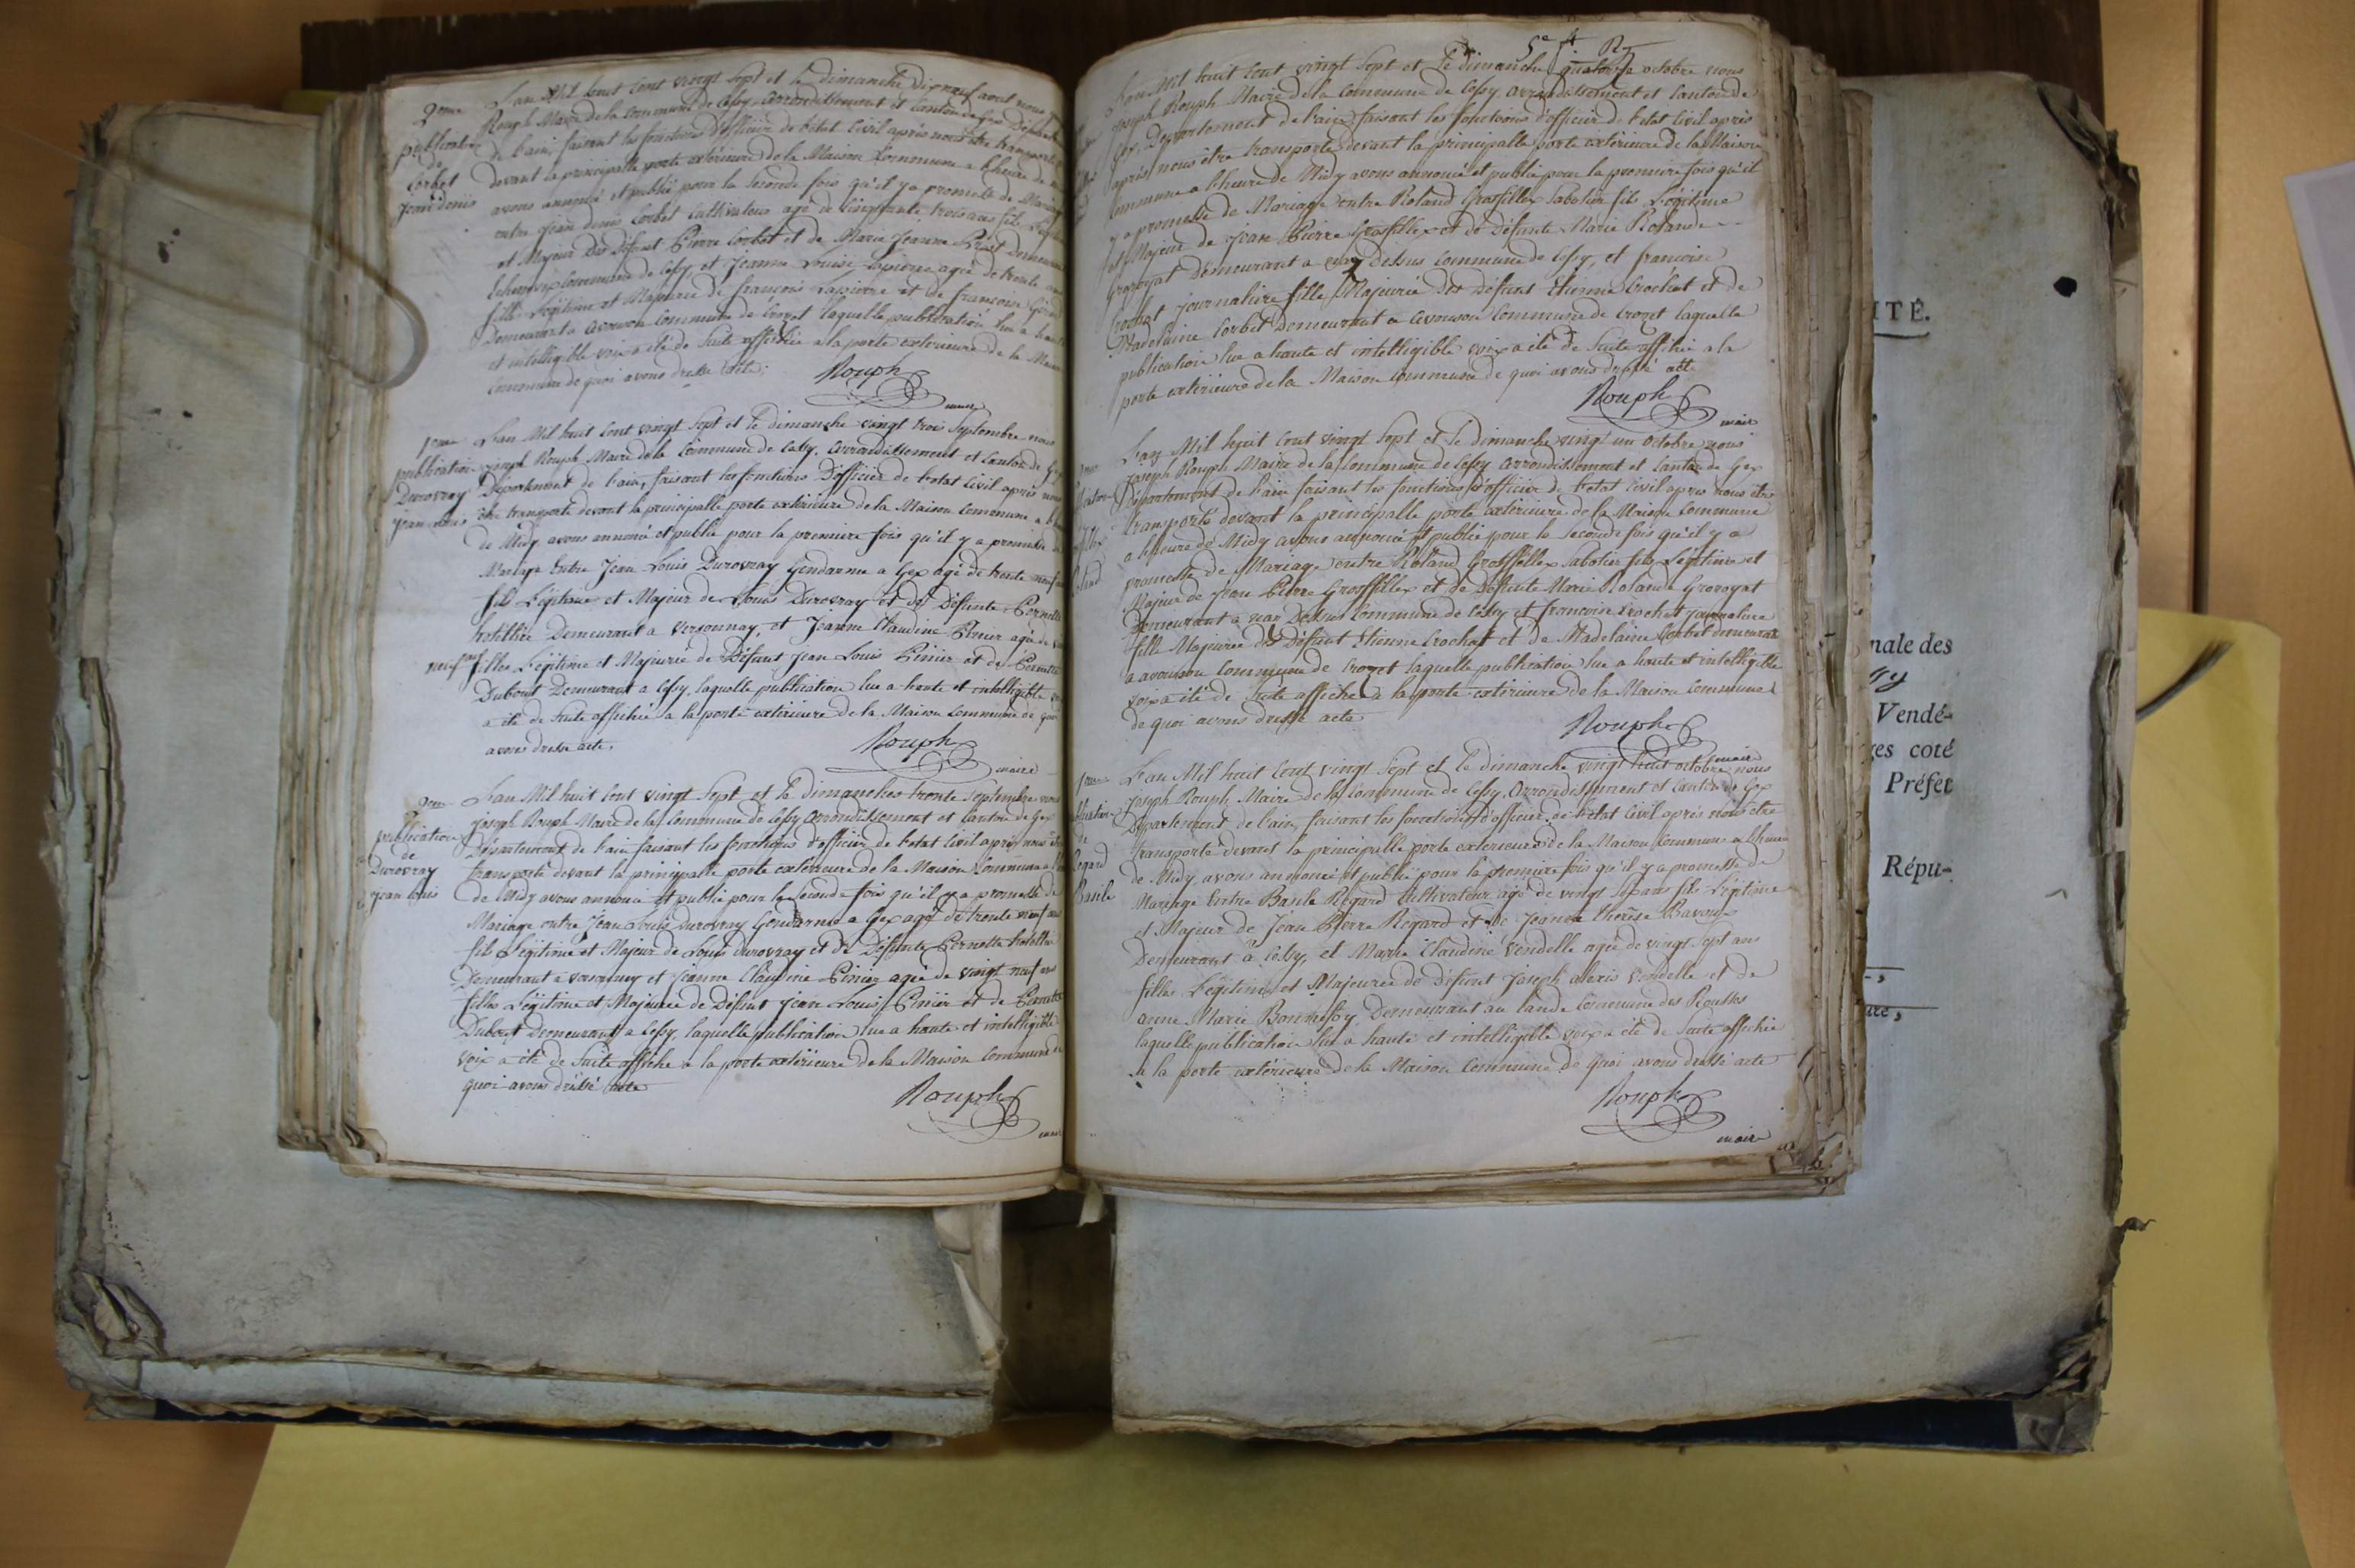 2eme
publication
de
Corbet
jean denis
L'an Mil huit Cent vingt Sept et le dimanche dixneuf aout nous
Rouph Maire de la Commune de Cessy, arrondissement et Canton de Gex Départe
de L'ain, faisant les fonctions d'officier de L'état Civil après nous être transporté
devant la principalle porte extérieure de la Maison Commune a L'heure de
avons annoncé et publié pour la Seconde fois qu'il y a promesse de Mariage
entre jean denis Corbet Cultivateur agé de Cinquante trois ans fils
et Majeur de Défunt Pierre Corbet et de Marie Jeanne Demeurant
Commune de Cessy, et Jeanne Louise Lapierre agée de trente
fille Légitime et Majeure de françois Lapierre et de françoise
Demeurant a avouson Commune de Crozet laquelle publication lue a haute
et intelligible voix a été de Suite affichée a la porte exterieure de la Maison
Commune de quoi avons dressé acte;
Rouph
maire
1ere
publication
Durovray
jean louis
L'an Mil huit Cent vingt Sept et le dimanche vingt trois Septembre nous
joseph Rouph Maire de la Commune de Cessy, arrondissement et Canton de Gex
Département de L'ain, faisant les fonctions D'officier de L'état Civil après nous
être transporté devant la principalle porte extérieure de la Maison Commune a
de Midy avons annoncé et publié pour la premiere fois qu'il y a promesse de
Mariage Entre Jean Louis Durovray Gendarme a Gex agé de trente neuf ans
fils Légitime et Majeur de Louis Durovray et de Défunte Pernette
hotellier Demeurant a Versonnay, et Jeanne Claudine Pinier agée de
neuf ans filles Légitime et Majeurie de Défunt Jean Louis Pinier et de Pernette
Dubout Demeurant a Cessy, laquelle publication lue a haute et intelligible
a été de Suite affichée a la porte extérieure de la Maison Commune de quoi
avons dressé acte.
Rouph
maire
2eme
publication
de
Durovray
jean louis
L'an Mil huit Cent vingt Sept et le dimanches trente Septembre nous
joseph Rouph Maire de la Commune de Cessy arrondissement et Canton de Gex
Département de L'ain faisant les fonctions d'officier de L'état Civil après nous être
transporté devant la principalle porte extérieure de la Maison Commune a
de Midy avons annoncé et publié pour la Seconde fois qu'il y a promesse de
Mariage entre Jean Louis Durovray Gendarme a Gex agé de trente neuf ans
fils Légitime et Majeur de Louis Durovray et de Défunte Pernette hotellier
Demeurant a Versonnay et Jeanne Claudine Pinier agée de vingt neuf ans
filles Légitime et Majeurie de Défunt Jean Louis Pinier et de Pernette
Dubout Demeurant a Cessy, laquelle publication lue a haute et intelligible
voix a été de Suite affiché a la porte extérieure de la Maison Commune de
quoi avons dressé acte
Rouph
maire
5e
L'an Mil huit Cent vingt Sept et le dimanche quatorze octobre nous
joseph Rouph Maire de la Commune de Cessy, arrondissement et Canton de
Gex, Département de L'ain faisant les fonctions d'officier de L'état Civil après
après nous être transporté devant la principalle porte extérieure de la Maison
Commune a L'heure de Midy avons annoncé et publié pour la premiere fois qu'il
y a promesse de Mariage entre Roland Grosfillex Sabotier fils Légitime
et Majeur de Jean Pierre Grosfillex et de Défunte Marie Rolande
Grospyat Demeurant a Dessus Commune de Cessy, et francoise
Crochat journaliere fille Majeurie de Défunt Etienne Crochat et de
Madelaine Corbet Demeurant a avouson Commune de Crozet laquelle
publication lue a haute et intelligible voix a été de Suite affichée a la
porte extérieure de la Maison Commune de quoi avons dressé acte
Rouph
maire
L'an Mil huit Cent vingt Sept et le dimanche vingt un octobre nous
joseph Rouph Maire de la Commune de Cessy arrondissement et Canton de Gex
Département de L'ain faisant les fonctions d'officier de L'état Civil apres nous être
transporté devant la principalle porte extérieure de la Maison Commune
a L'heure de Midy avons annoncé et publié pour la Seconde fois qu'il y a
promesse de Mariage entre Roland Grossfillex Sabotier fils Légitime et
Majeur de Jean Pierre Grossfillex et de Défunte Marie Rolande
Demeurant a Dessus Commune de Cessy et francoise Crochat journaliere
fille Majeurie de Défunt Etienne Crochat et de Madelaine Corbet demeurant
a avouson Commune de Crozet laquelle publication lue a haute et intelligible
voix a été de Suite affiché a la porte extérieure de la Maison Commune
de quoi avons dressé acte
Rouph
maire
1ere
de
Regard
Basile
L'an Mil huit Cent vingt Sept et le dimanche vingt huit octobre nous
joseph Rouph Maire de la Commune de Cessy, arrondissement et Canton de Gex
Département de L'ain, faisant les fonctions d'officier de L'état Civil après nous être
transporté devant la principalle porte exterieure de la Maison Commune a L'heure
de Midy avons annoncé et publié pour la premiere fois qu'il y a promesse de
Mariage Entre Basile Regard Cultivateur agé de vingt Sept ans fils Légitime
et Majeur de Jean Pierre Regard et de Jeanne Therèse Bavoux
Demeurant à Cessy, et Marie Claudine Vendelle agée de vingt Sept ans
filles Légitime et Majeurie de défunt Joseph alexis Vendelle et de
anne Marie Bonnefoy Demeurant au lande Commune des Rousses
laquelle publication lue a haute et intelligible voix a été de Suite affichée
a la porte extérieure de la Maison Commune de quoi avons dressé acte
Rouph
maire
ITÉ.
nale des
Vendé-
ges coté
Préfet
Répu-